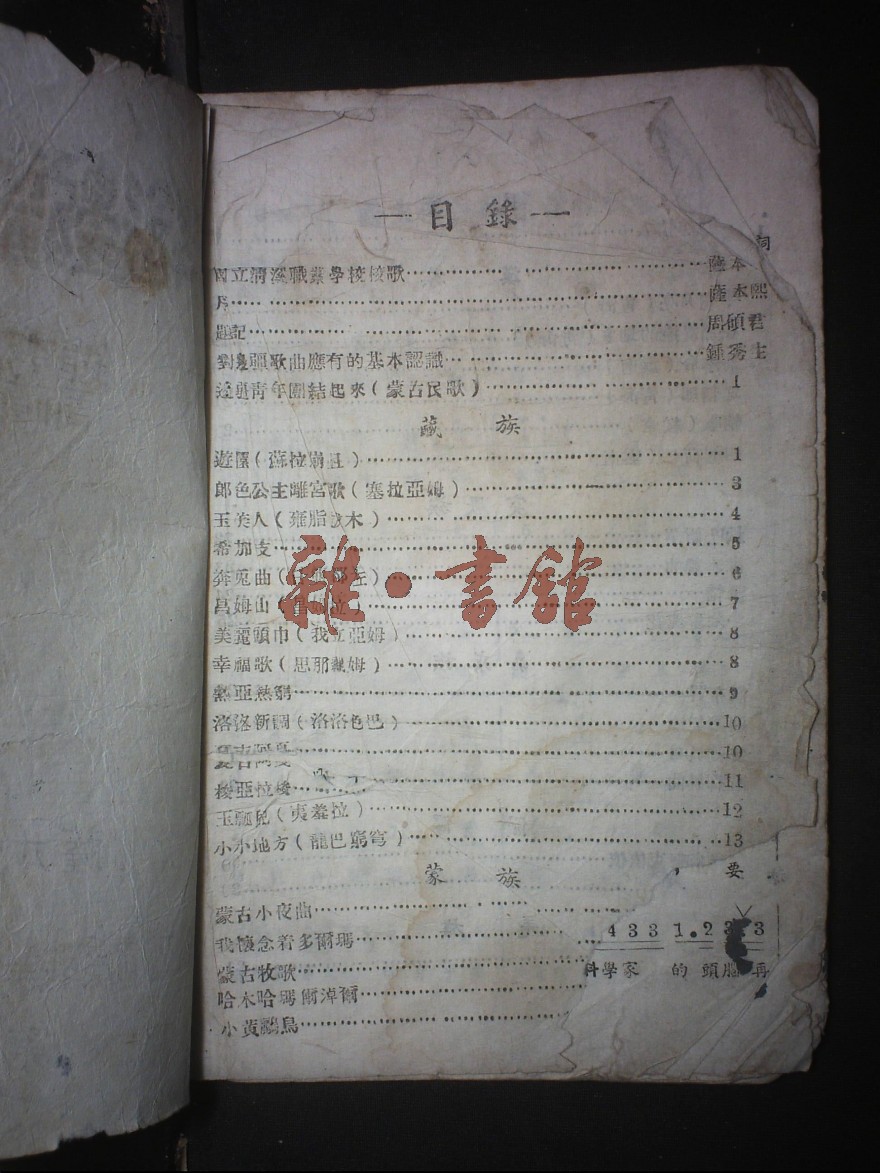 目錄
詞
國立清溪職業學校校歌 薩本
序 薩本熙
題記 周碩君
對邊疆歌曲應有的基本認識 鍾秀生
邊疆青年團結起來（蒙古民歌） 1
藏族
遊園（蘇拉崩且） 1
郎色公主離宮歌（塞拉亞姆） 3
玉美人（ 木） 4
希加支 5
奔莵曲（ ） 6
昌姆山（ ） 7
美麗頭巾（我立亞姆） 8
幸福歌（思那 姆） 8
熱亞熱 9
洛洛新 （洛洛色巴） 10
10
梭亞拉 11
玉 兒（夷羞拉） 12
小小地方（龍巴窮穹） 13
蒙族
，要
蒙古小夜曲
我懷念着多爾瑪
4 3 3 1.2 3 3
蒙古牧歌
科學家 的 頭腦 再
哈木哈瑪爾淖爾
小黃鸝鳥
雜·書館